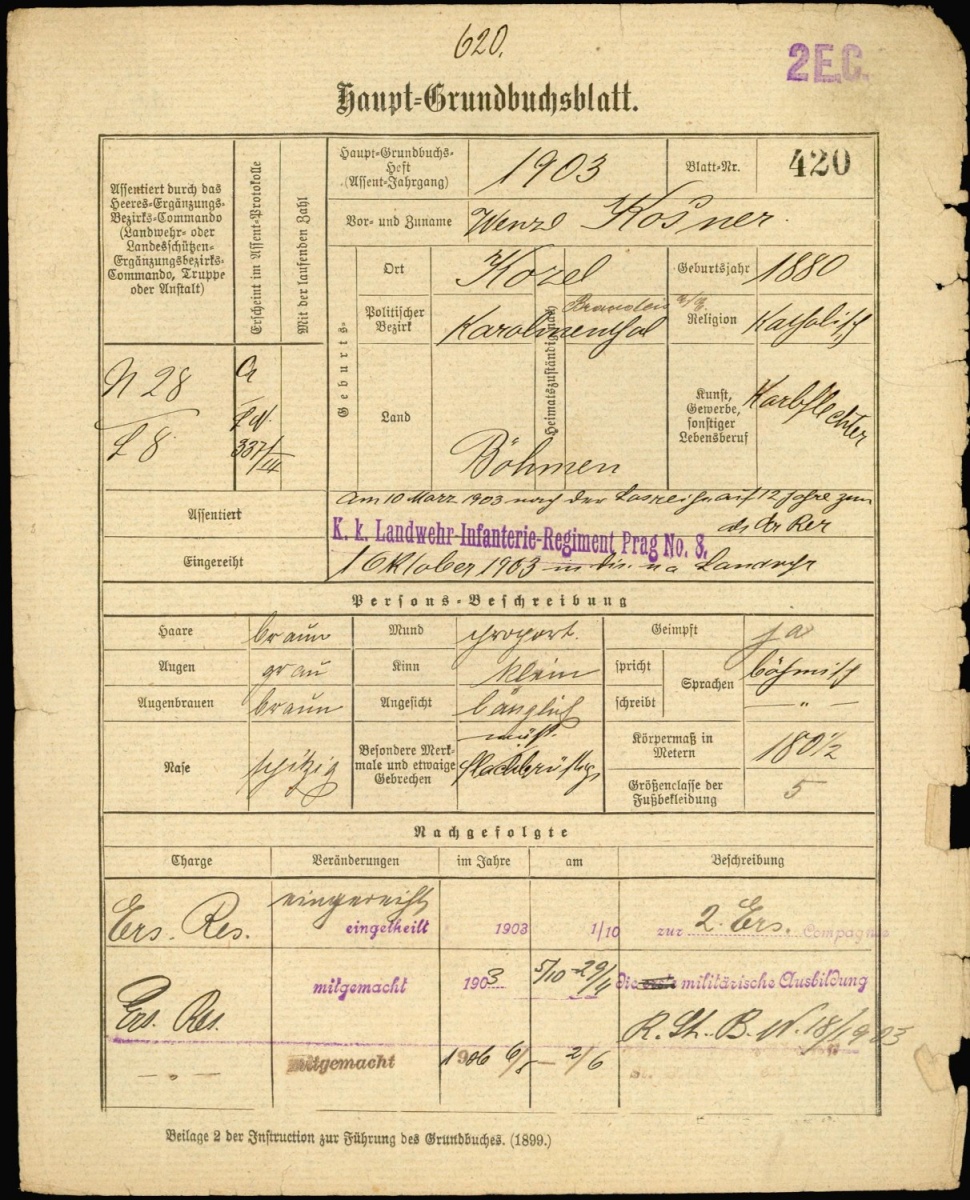 620.
2 E.C.
Haupt-Grundbuchsblatt.
Assentiert durch das
Heeres-Ergänzungs-
Bezirks-Commando
(Landwehr- oder
Landesschützen-
Ergänzungsbezirks-
Commando, Truppe
oder Anstalt)
Erscheint im Assent-Protokolle
Mit der laufenden Zahl
N 28
L 8
337/III
Haupt-Grundbuchs-
Heft
(Assent-Jahrgang)
1903
Blatt-Nr.
420
Vor- und Zuname
Wenzl Kosner
Geburts-
Ort
Kozel
Geburtsjahr
1880
Politischer
Bezirk
Karolinenthal
Heimatszuständig nach
Brandeis a/E.
Religion
Katholisch
Land
Böhmen
Kunst,
Gewerbe,
sonstiger
Lebensberuf
Korbflechter
Assentiert
am 10 März 1903 nach der Losreihe auf 12 Jahre zum
K. k. Landwehr-Infanterie-Regiment Prag No. 8.
als Er Res
Eingereiht
1 Oktober 1903 in die Landwehr
Persons-Beschreibung
Haare
braun
Mund
proport.
Geimpft
ja
Augen
grau
Kinn
klein
spricht
Sprachen
böhmisch
Augenbrauen
braun
Angesicht
länglich
schreibt
— " —
Nase
spitzig
Besondere Merk-
male und etwaige
Gebrechen
flachbrüstig
Körpermaß in
Metern
180 1/2
Größenclasse der
Fußbekleidung
5
Nachgefolgte
Charge
Veränderungen
im Jahre
am
Beschreibung
Ers. Res.
eingereiht
eingetheilt
1903
1/10
zur 2. Ers. Compagnie
Ers. Res.
mitgemacht
1903
5/10 - 29/11
die militärische Ausbildung
— " —
mitgemacht
1906
6/5 — 2/6
Beilage 2 der Instruction zur Führung des Grundbuches. (1899.)